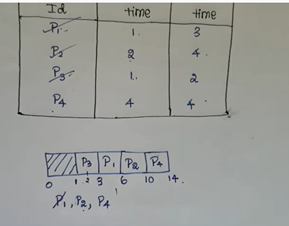 Id time time
P1 1 3
P2 2 4
P3 1 2
P4 4 4
P3 P1 P2 P4
0 1 2 3 6 10 14
P1, P2, P4